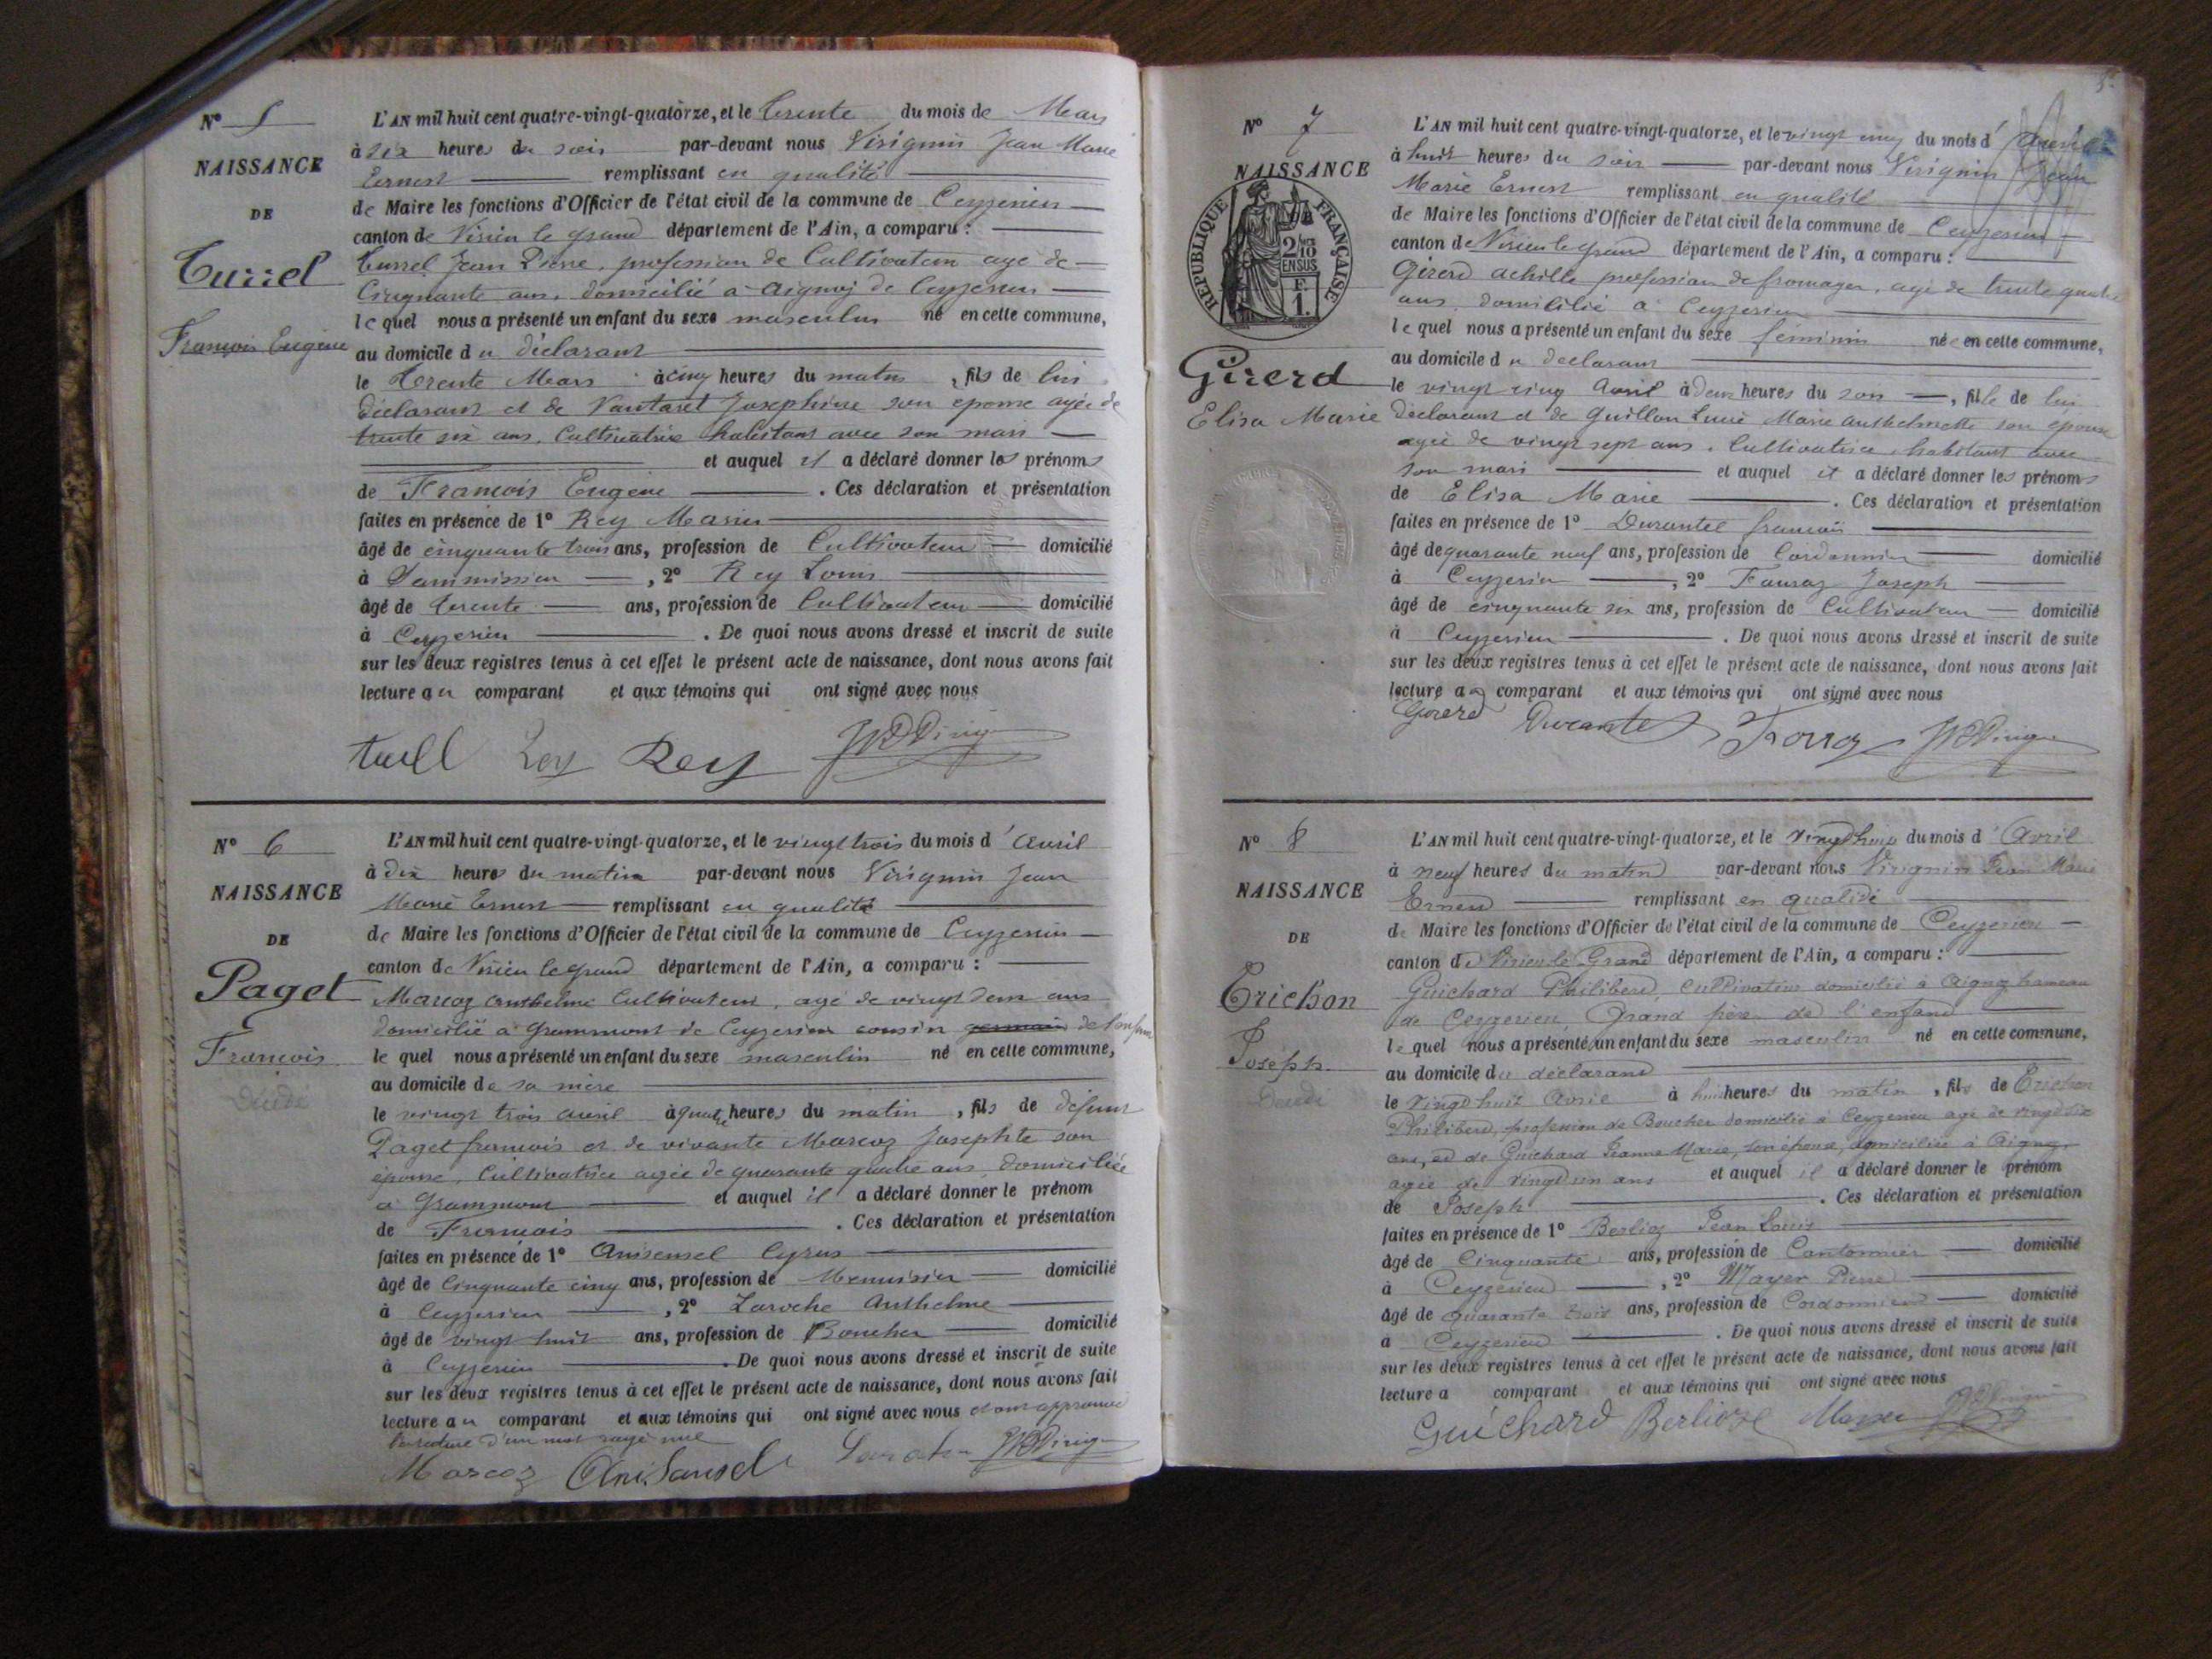 N° 5
NAISSANCE
DE
Turrel
François Eugène
L'AN mil huit cent quatre-vingt-quatorze, et le trente du mois de Mars
à six heures du soir par-devant nous Virignin Jean Marie
Ernest remplissant en qualité
de Maire les fonctions d'Officier de l'état civil de la commune de Ceyzerieu
canton de Virieu le grand département de l'Ain, a comparu :
Turrel Jean Pierre, profession de Cultivateur agé de
Cinquante ans, domicilié à Aignoz de Ceyzerieu
lequel nous a présenté un enfant du sexe masculin né en cette commune,
au domicile du déclarant
le trente Mars à cinq heures du matin, fils de lui
déclarant et de Vautaret Josephine son épouse agée de
trente six ans, Cultivatrice habitant avec son mari
et auquel il a déclaré donner les prénoms
de François Eugène . Ces déclaration et présentation
faites en présence de 1° Rey Marin
âgé de cinquante trois ans, profession de Cultivateur domicilié
à , 2° Rey Louis
âgé de trente ans, profession de Cultivateur domicilié
à Ceyzerieu . De quoi nous avons dressé et inscrit de suite
sur les deux registres tenus à cet effet le présent acte de naissance, dont nous avons fait
lecture au comparant et aux témoins qui ont signé avec nous
Rey Rey
N° 6
NAISSANCE
DE
Paget
François
L'AN mil huit cent quatre-vingt-quatorze, et le vingt trois du mois d'avril
à dix heures du matin par-devant nous Virignin Jean
Marie Ernest remplissant en qualité
de Maire les fonctions d'Officier de l'état civil de la commune de Ceyzerieu
canton de Virieu le grand département de l'Ain, a comparu :
Marcoz Anthelme Cultivateur, agé de vingt deux ans
domicilié à Grammont de Ceyzerieu cousin germain de l'enfant
lequel nous a présenté un enfant du sexe masculin né en cette commune,
au domicile de sa mère
le vingt trois avril à quatre heures du matin, fils de défunt
Paget françois et de vivante Marcoz Josephte son
épouse, Cultivatrice agée de quarante quatre ans domiciliée
à Grammont et auquel il a déclaré donner le prénom
de François . Ces déclaration et présentation
faites en présence de 1° Anisensel Cyrus
âgé de Cinquante cinq ans, profession de Menuisier domicilié
à Ceyzerieu , 2° Laroche Anthelme
âgé de vingt huit ans, profession de Boucher domicilié
à Ceyzerieu . De quoi nous avons dressé et inscrit de suite
sur les deux registres tenus à cet effet le présent acte de naissance, dont nous avons fait
lecture au comparant et aux témoins qui ont signé avec nous et ont approuvé
la rature d'un mot rayé nul
Marcoz
N° 7
NAISSANCE
DE
RÉPUBLIQUE FRANÇAISE
2/10 EN SUS
F. 1.
Girerd
Elisa Marie
L'AN mil huit cent quatre-vingt-quatorze, et le vingt cinq du mois d'avril
à huit heures du soir par-devant nous Virignin Jean
Marie Ernest remplissant en qualité
de Maire les fonctions d'Officier de l'état civil de la commune de Ceyzerieu
canton de Virieu le grand département de l'Ain, a comparu :
Girerd achille profession de fromager, agé de trente quatre
ans domicilié à Ceyzerieu
lequel nous a présenté un enfant du sexe féminin née en cette commune,
au domicile du déclarant
le vingt cinq avril à deux heures du soir, fille de lui
déclarant et de Guillon Lucie Marie Anthelmette son épouse
agée de vingt sept ans, Cultivatrice, habitant avec
son mari et auquel il a déclaré donner les prénoms
de Elisa Marie . Ces déclaration et présentation
faites en présence de 1° Durantel françois
âgé de quarante neuf ans, profession de Cordonnier domicilié
à Ceyzerieu , 2° Fauraz Joseph
âgé de cinquante six ans, profession de Cultivateur domicilié
à Ceyzerieu . De quoi nous avons dressé et inscrit de suite
sur les deux registres tenus à cet effet le présent acte de naissance, dont nous avons fait
lecture au comparant et aux témoins qui ont signé avec nous
Girerd Durantel
N° 8
NAISSANCE
DE
Trichon
Joseph
L'AN mil huit cent quatre-vingt-quatorze, et le vingt huit du mois d'Avril
à neuf heures du matin par-devant nous Virignin Jean Marie
Ernest remplissant en qualité
de Maire les fonctions d'Officier de l'état civil de la commune de Ceyzerieu
canton de Virieu le Grand département de l'Ain, a comparu :
Guichard Philibert, Cultivateur domicilié à Aignoz hameau
de Ceyzerieu, Grand père de l'enfant
lequel nous a présenté un enfant du sexe masculin né en cette commune,
au domicile du déclarant
le vingt huit Avril à huit heures du matin, fils de Trichon
Philibert, profession de Boucher domicilié à Ceyzerieu agé de vingt six
ans, et de Guichard Jeanne Marie, son épouse, domiciliée à Aignoz,
agée de vingt un ans et auquel il a déclaré donner le prénom
de Joseph . Ces déclaration et présentation
faites en présence de 1° Berlioz Jean Louis
âgé de Cinquante ans, profession de Cantonnier domicilié
à Ceyzerieu , 2° Mayer Pierre
âgé de quarante trois ans, profession de Cordonnier domicilié
à Ceyzerieu . De quoi nous avons dressé et inscrit de suite
sur les deux registres tenus à cet effet le présent acte de naissance, dont nous avons fait
lecture a comparant et aux témoins qui ont signé avec nous
Guichard Berlioz